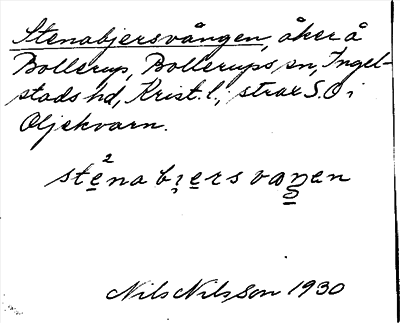 Stenabjersvången, åker å
Bollerup, Bollerups sn, Ingel-
stads hd, Krist. l., strax S.O i
Oljekvarn.
Nils Nilsson 1930